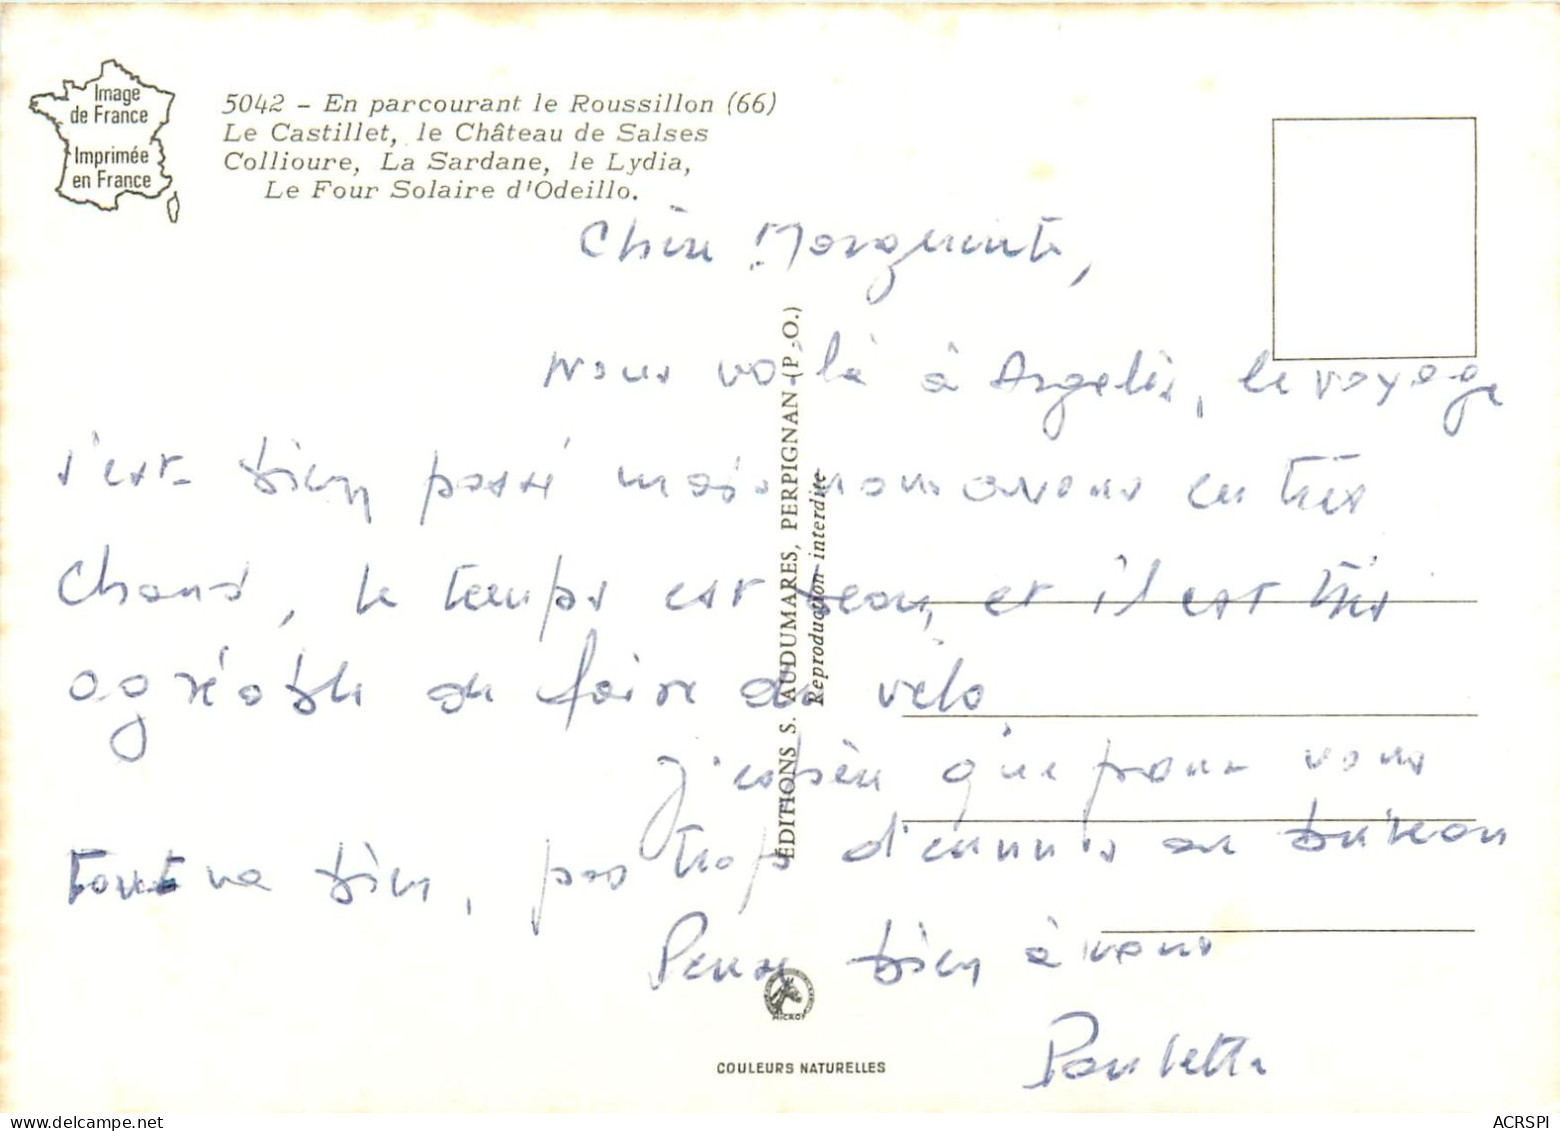 Image
de France
Imprimée
en France
5042 - En parcourant le Roussillon (66)
Le Castillet, le Château de Salses
Collioure, La Sardane, le Lydia,
Le Four Solaire d'Odeillo.
Chère Marguerite,
Nous voilà à Argelès, le voyage
s'est bien passé mais nous avons eu très
chaud, le temps est beau, et il est très
agréable de faire du vélo
J'espère que pour vous
tout va bien, pas trop d'ennuis au
Pense bien à vous
Paulette
ÉDITIONS S. AUDUMARES, PERPIGNAN (P.-O.)
Reproduction interdite
MICRO
COULEURS NATURELLES
delcampe.net
ACRSPI